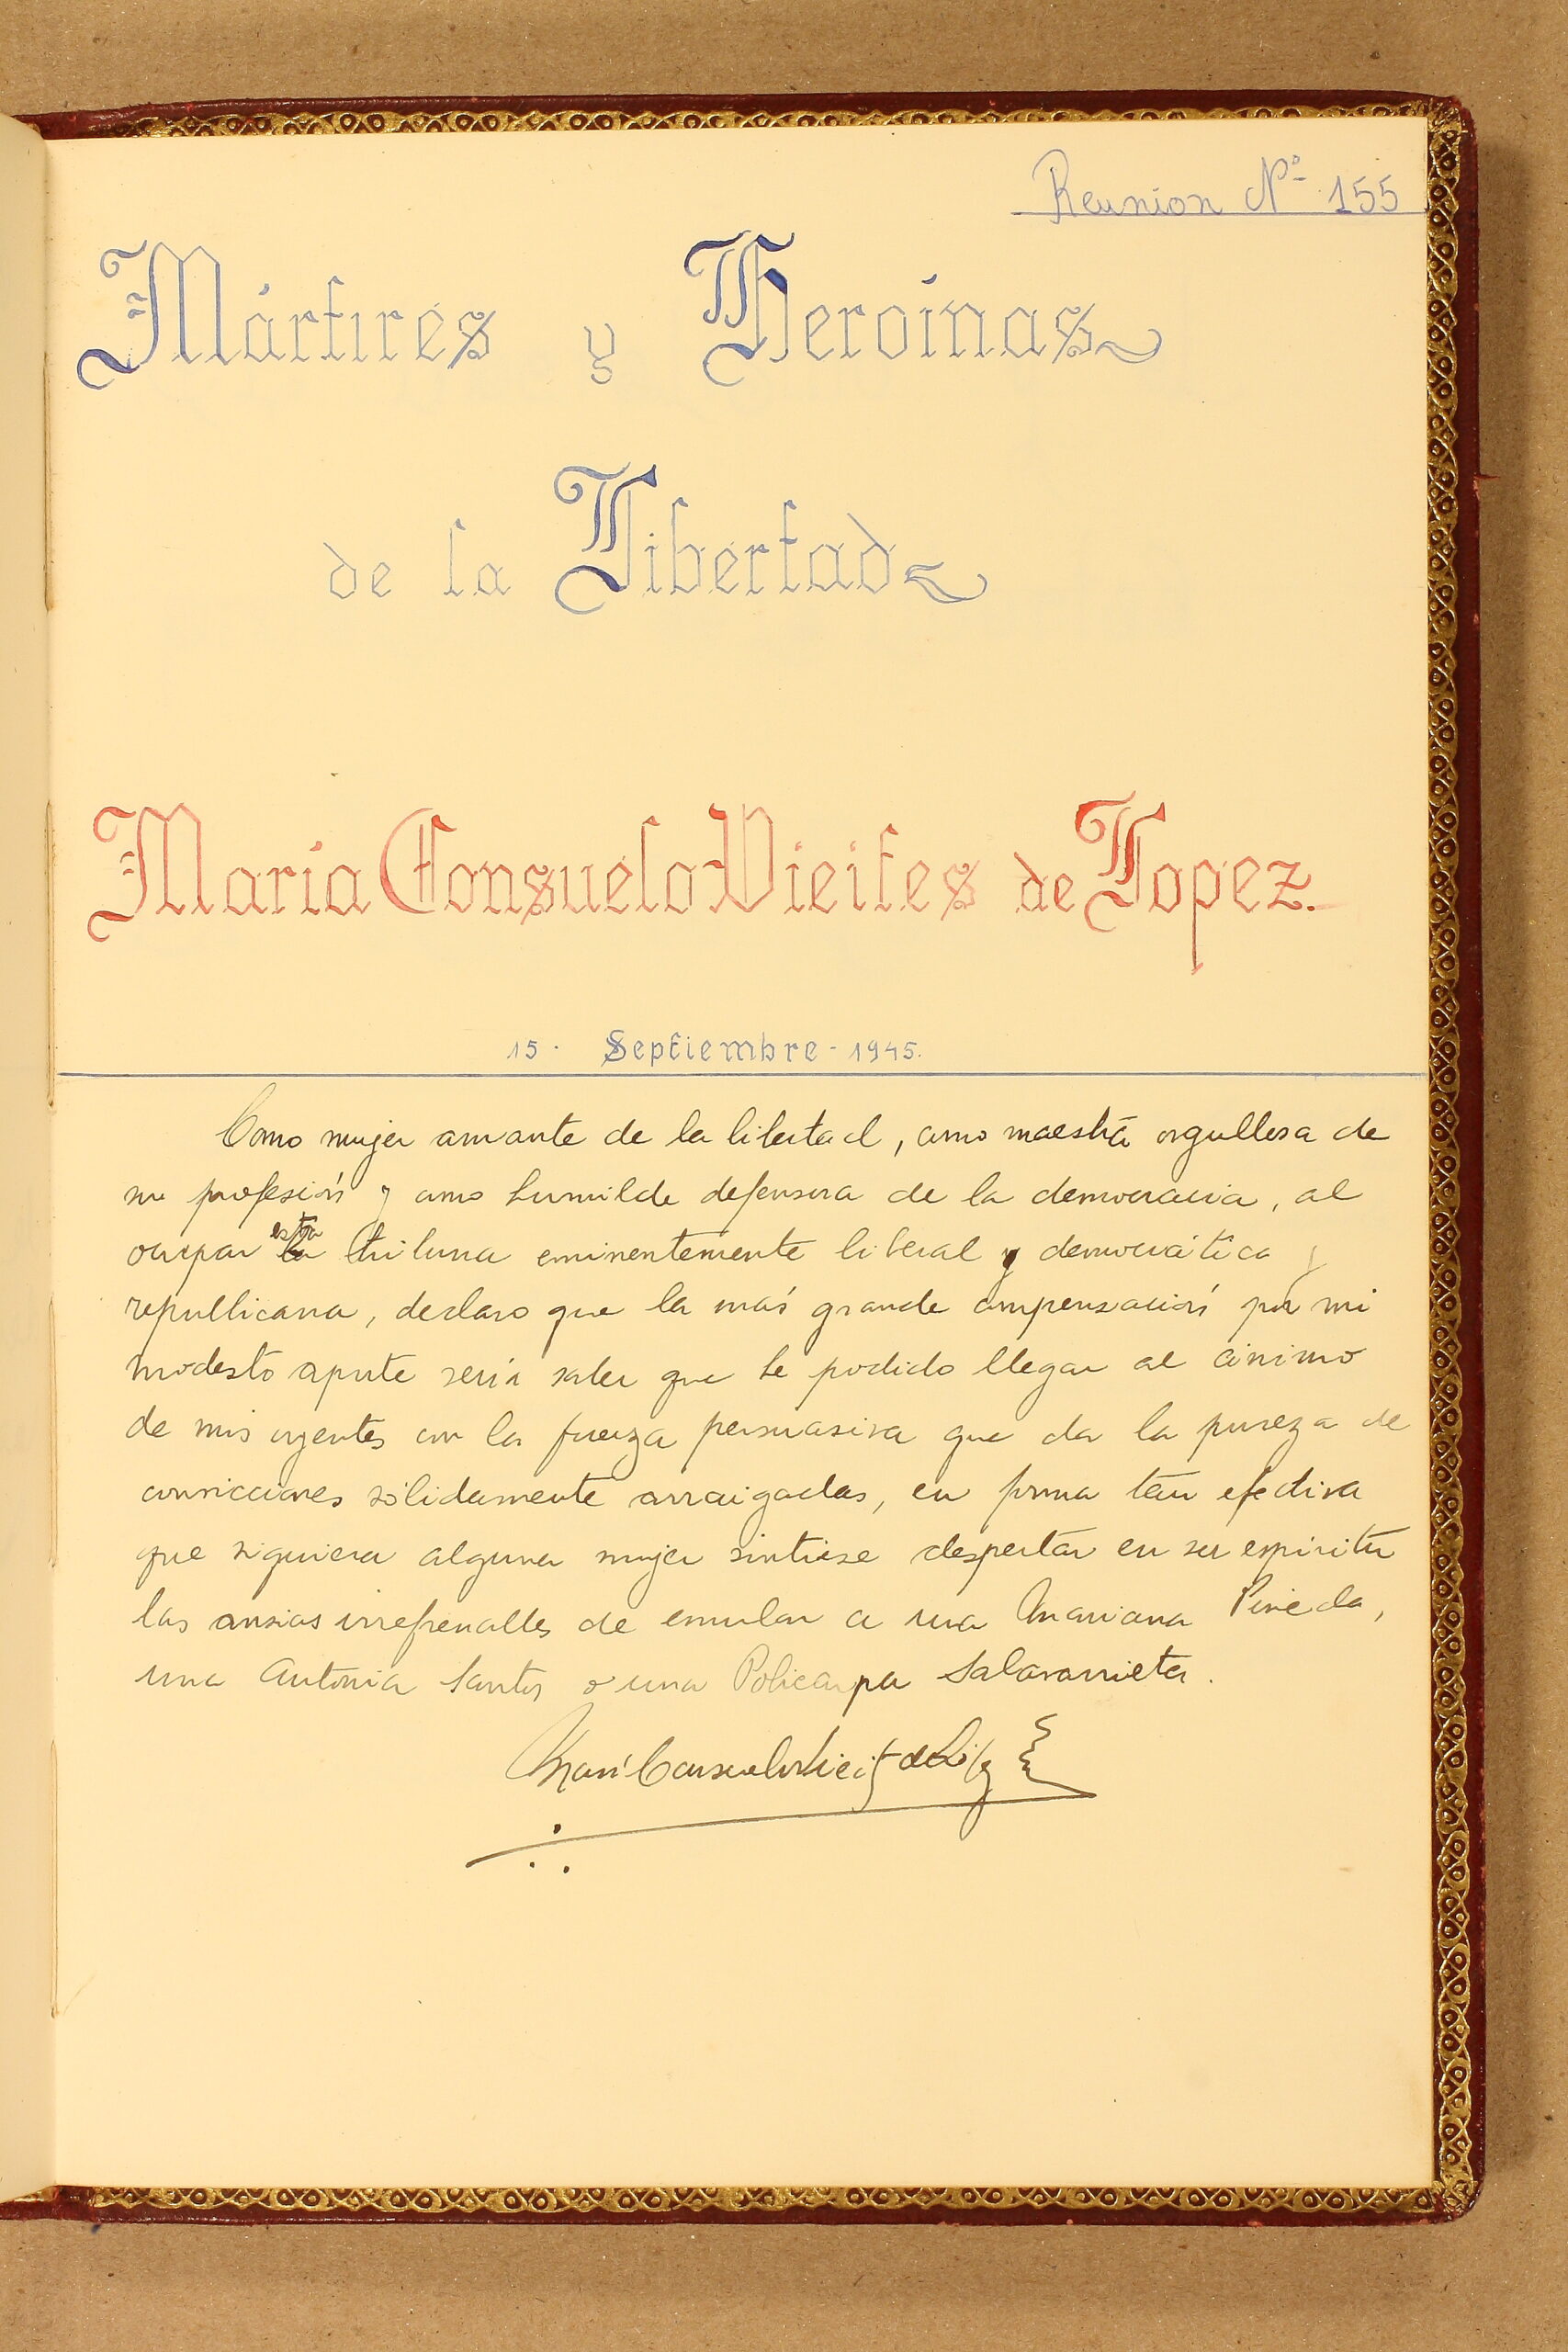 Reunion Nº 155
Mártires y Heroínas
de la Libertad
María Consuelo Vieites de Lopez.
15 · Septiembre - 1945.
Como mujer amante de la libertad, como maestra orgullosa de
su profesión y como humilde defensora de la democracia, al
ocupar esta tribuna eminentemente liberal y democrática y
republicana, declaro que la más grande compensación por mi
modesto aporte sería saber que he podido llegar al ánimo
de mis oyentes con la fuerza persuasiva que da la pureza de
convicciones sólidamente arraigadas, en forma tan efectiva
que siquiera alguna mujer sintiese despertar en su espíritu
las ansias irrefrenables de emular a una Mariana Pineda,
una Antonia Santos o una Policarpa Salavarrieta.
María Consuelo Vieites de López